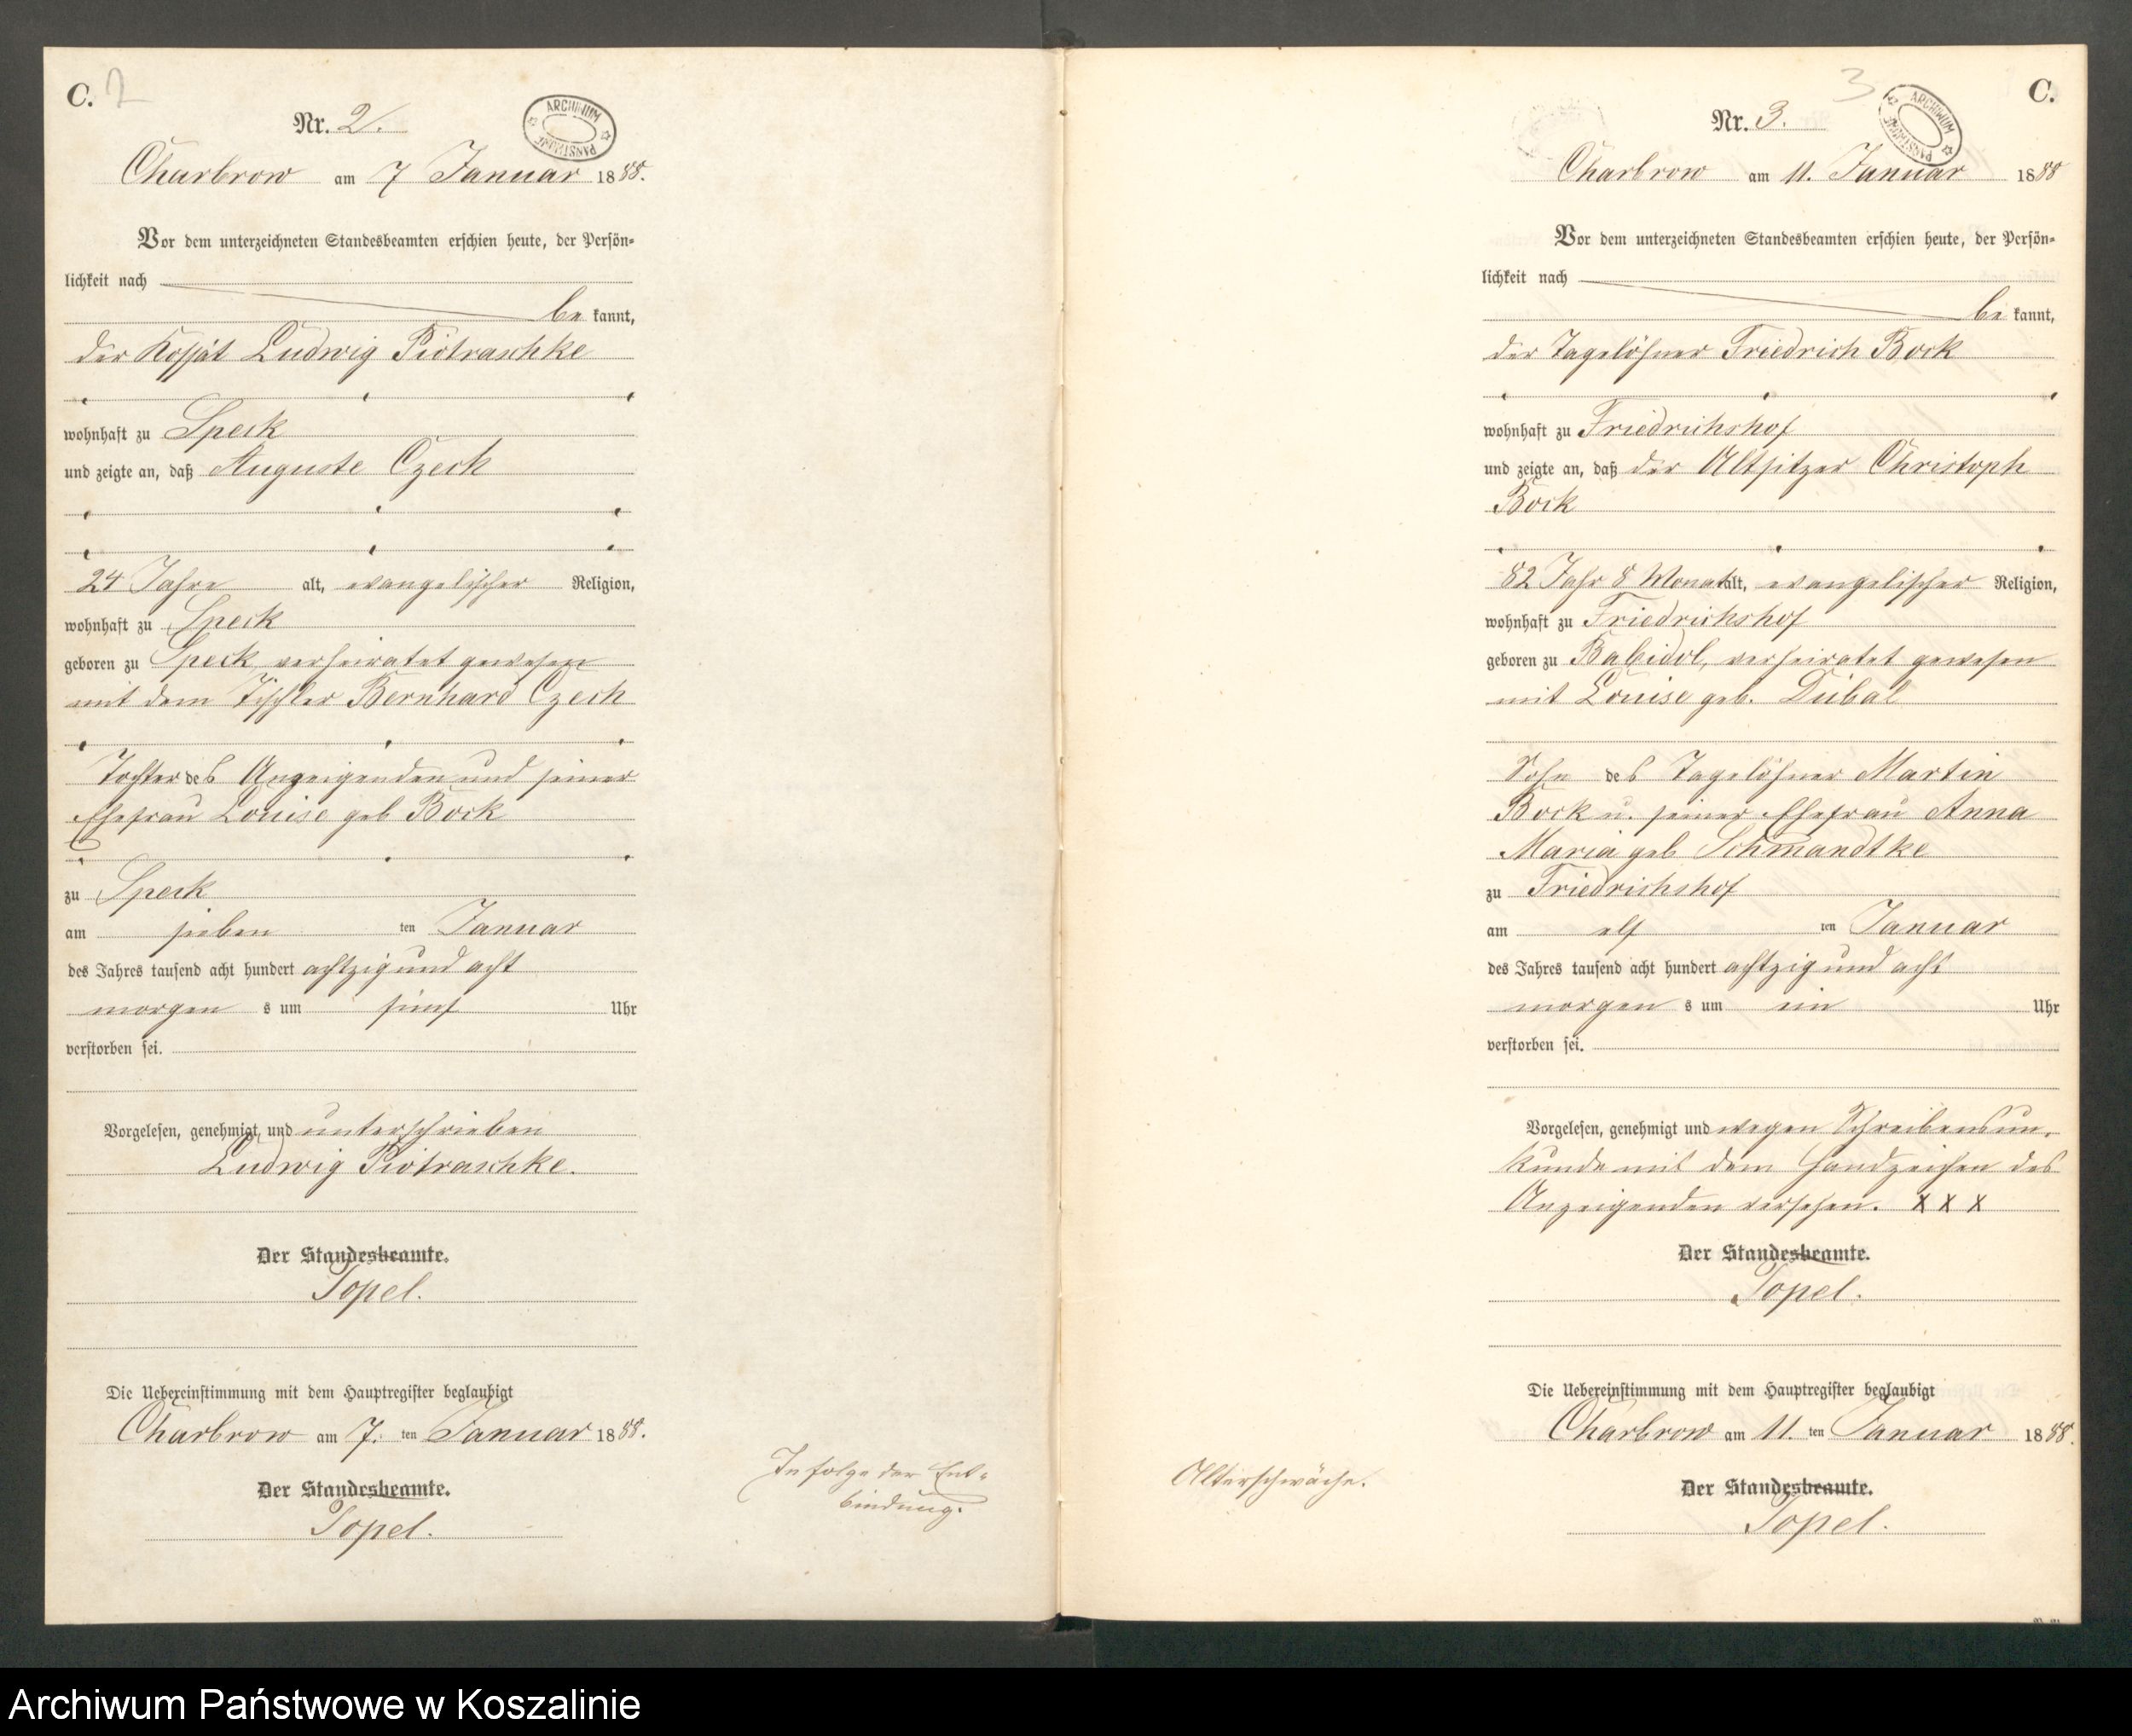 C. 2
Nr. 2.
ARCHIWUM PAŃSTWOWE
Charbrow am 7 Januar 1888.
Vor dem unterzeichneten Standesbeamten erschien heute, der Persön-
lichkeit nach
be kannt,
der Kossät Ludwig Piotraschke
wohnhaft zu Speck
und zeigte an, daß Auguste Czech
24 Jahre alt, evangelischer Religion,
wohnhaft zu Speck
geboren zu Speck, verheiratet gewesen
mit dem Tischler Bernhard Czech
Tochter des Anzeigenden und seiner
Ehefrau Louise geb Bock
zu Speck
am sieben ten Januar
des Jahres tausend acht hundert achtzig und acht
morgen s um fünf Uhr
verstorben sei.
Vorgelesen, genehmigt und unterschrieben
Ludwig Piotraschke.
Der Standesbeamte.
Topel.
Die Uebereinstimmung mit dem Hauptregister beglaubigt
Charbrow am 7. ten Januar 1888.
Der Standesbeamte.
Topel.
In folge der Ent-
bindung.
3 C.
Nr. 3.
ARCHIWUM PAŃSTWOWE
Charbrow am 11. Januar 1888
Vor dem unterzeichneten Standesbeamten erschien heute, der Persön-
lichkeit nach
be kannt,
der Tagelöhner Friedrich Bock
wohnhaft zu Friedrichshof
und zeigte an, daß der Altsitzer Christoph
Bock
82 Jahr 8 Monat alt, evangelischer Religion,
wohnhaft zu Friedrichshof
geboren zu Babidol, verheiratet gewesen
mit Louise geb. Dubal
Sohn des Tagelöhner Martin
Bock u. seiner Ehefrau Anna
Maria geb Schmandtke
zu Friedrichshof
am elf ten Januar
des Jahres tausend acht hundert achtzig und acht
morgen s um ein Uhr
verstorben sei.
Vorgelesen, genehmigt und wegen Schreibensun-
kunde mit dem Handzeichen des
Anzeigenden versehen. X X X
Der Standesbeamte.
Topel.
Die Uebereinstimmung mit dem Hauptregister beglaubigt
Charbrow am 11. ten Januar 1888.
Der Standesbeamte.
Topel.
Alterschwäche.
Archiwum Państwowe w Koszalinie